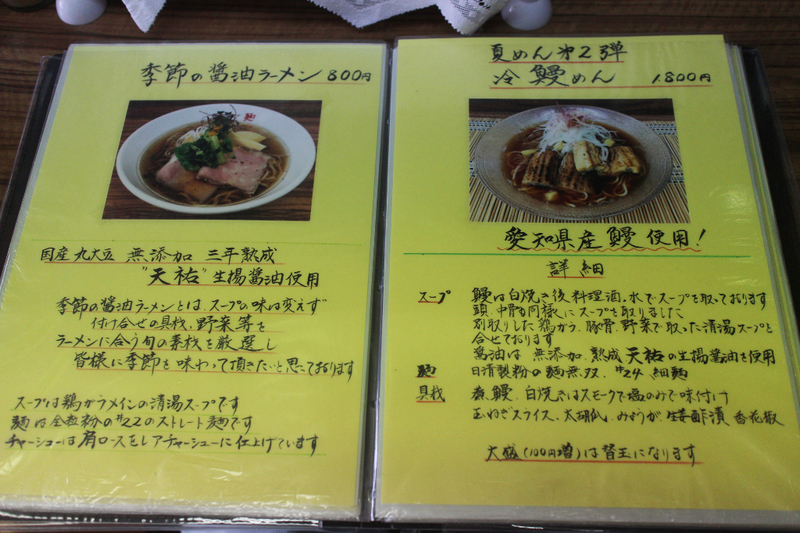 季節の醤油ラーメン 800円
国産丸大豆 無添加 三年熟成
"天祐"生揚醤油使用
季節の醤油ラーメンとは、スープの味は変えず
付け合せの具材、野菜等を
ラーメンに合う旬の素材を厳選し
皆様に季節を味わって頂きたいと思っております
スープは鶏がらメインの清湯スープです
麺は全粒粉の#22のストレート麺です
チャーシューは肩ロースをレアチャーシューに仕上げています
夏めん第2弾
冷 鰻めん 1.800円
愛知県産鰻使用!
詳細
スープ 鰻は白焼き後料理酒、水でスープを取っております
頭、中骨も同様にスープを取りました
別取りした鶏がら、豚骨、野菜で取った清湯スープと
合せております
醤油は 無添加、熟成 天祐の生揚醤油を使用
麺 日清製粉の麺無双、#24 細麺
具材 鰻、白焼きはスモークで塩のみで味付け
玉ねぎスライス、みょうが、生姜酢漬
大盛(100円増)は替玉になります